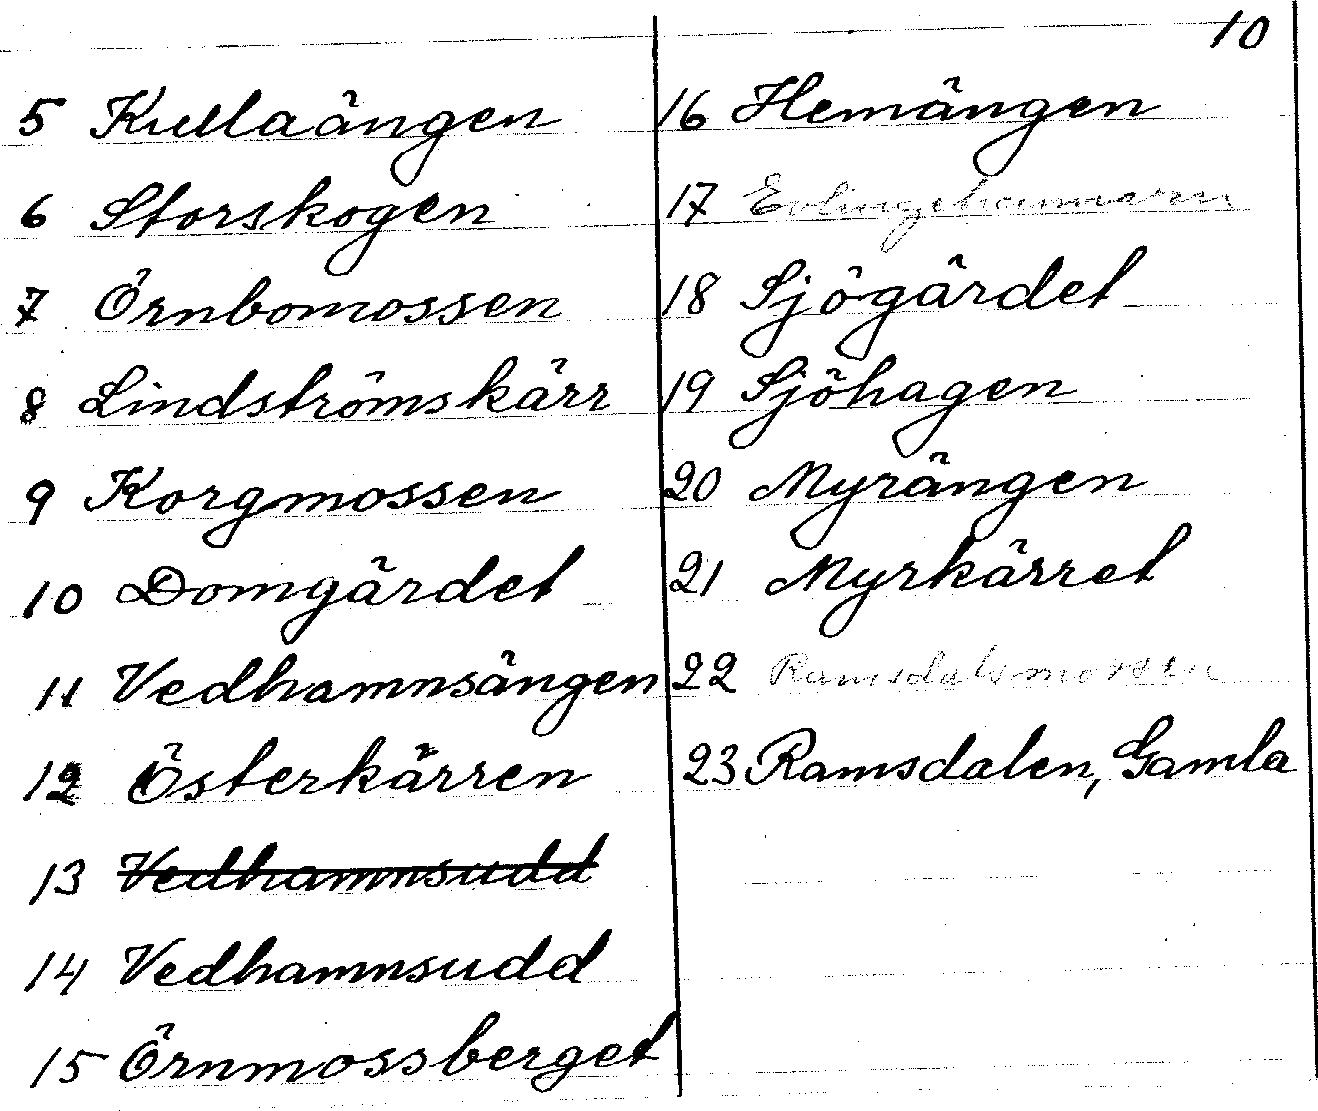 10
5 Kullaängen
6 Storskogen
7 Örnbomossen
8 Lindströmskärr
9 Korgmossen
10 Domgärdet
11 Vedhamnsängen
12 Österkärren
13 Vedhamnsudd
14 Vedhamnsudd
15 Örnmossberget
16 Hemängen
17
18 Sjögärdet
19 Sjöhagen
20 Myrängen
21 Myrkärret
22 Ramsdalsmossen
23 Ramsdalen, Gamla